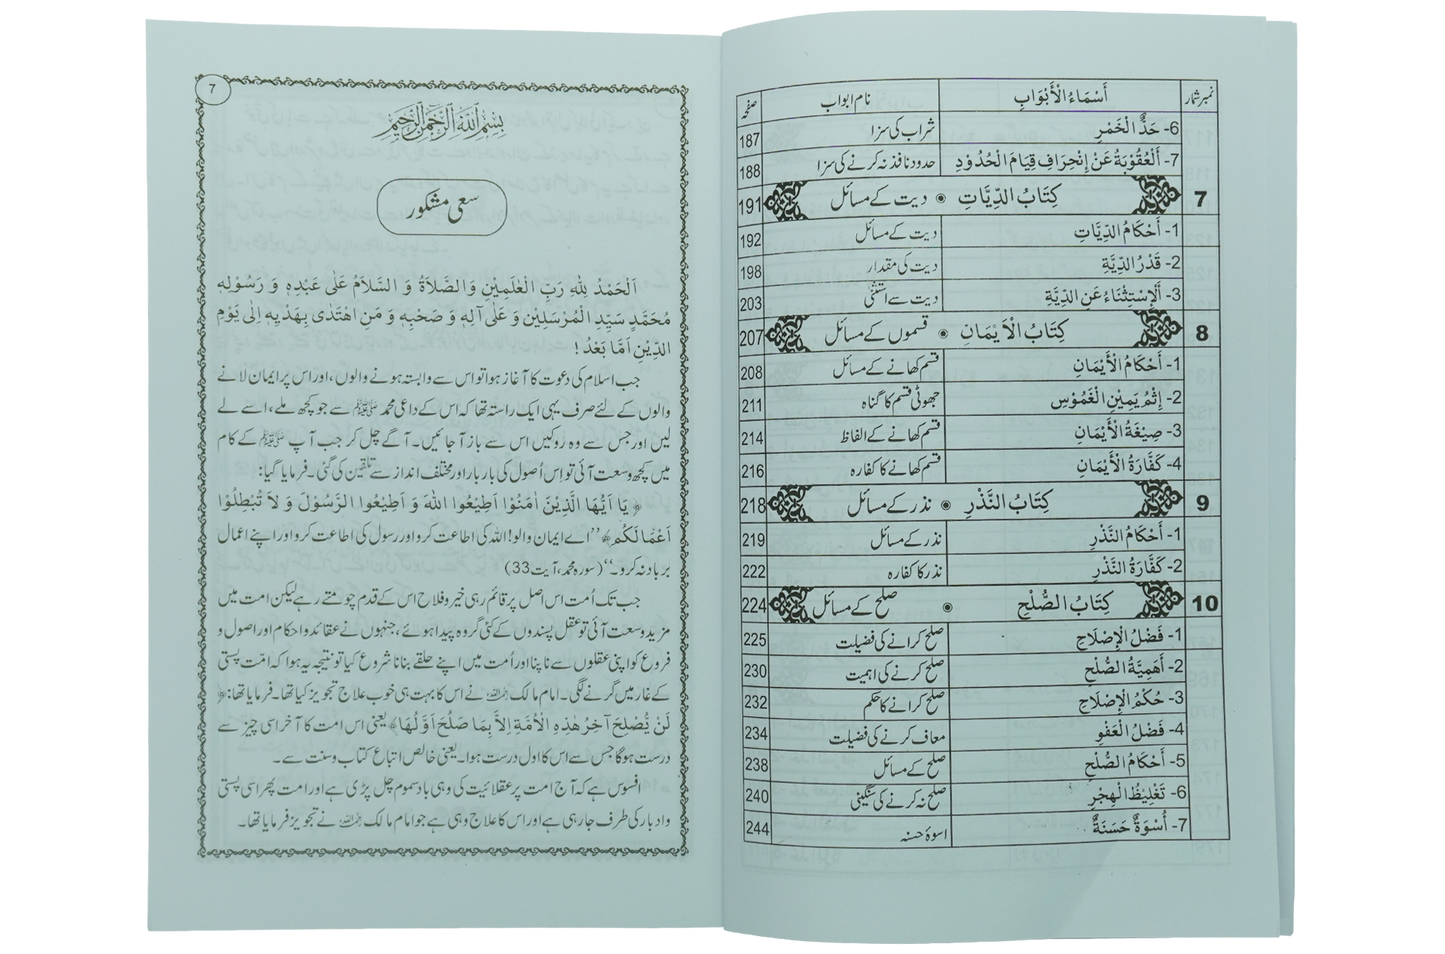 نمبر شمار أَسْمَاءُ الْأَبْوَابِ نام ابواب صفحہ
6- حَدُّ الْخَمْرِ شراب کی سزا 187
7- أَلْعُقُوْبَةُ عَنْ إِنْحِرَافِ قِيَامَ الْحُدُوْدِ حدود نافذ نہ کرنے کی سزا 188
7 كِتَابُ الدِّيَّاتِ ● دیت کے مسائل 191
1- أَحْكَامُ الدِّيَّاتِ دیت کے مسائل 192
2- قَدْرُ الدِّيَّةِ دیت کی مقدار 198
3- أَلْإِسْتِثْنَاءُ عَنِ الدِّيَّةِ دیت سے استثنٰی 203
8 كِتَابُ الْأَيْمَانِ ● قسموں کے مسائل 207
1- أَحْكَامُ الْأَيْمَانِ قسم کھانے کے مسائل 208
2- إِثْمُ يَمِيْنِ الْغَمُوْسِ جھوٹی قسم کا گناہ 211
3- صِيْغَةُ الْأَيْمَانِ قسم کھانے کے الفاظ 214
4- كَفَّارَةُ الْأَيْمَانِ قسم کھانے کا کفارہ 216
9 كِتَابُ النَّذْرِ ● نذر کے مسائل 218
1- أَحْكَامُ النَّذْرِ نذر کے مسائل 219
2- كَفَّارَةُ النَّذْرِ نذر کا کفارہ 222
10 كِتَابُ الصُّلْحِ ● صلح کے مسائل 224
1- فَضْلُ الْإِصْلَاحِ صلح کرانے کی فضیلت 225
2- أَهَمِيَّةُ الصُّلْحِ صلح کرنے کی اہمیت 230
3- حُكْمُ الْإِصْلَاحِ صلح کرانے کا حکم 232
4- فَضْلُ الْعَفْوِ معاف کرنے کی فضیلت 234
5- أَحْكَامُ الصُّلْحِ صلح کے مسائل 238
6- تَغْلِيْظُ الْهِجْرِ صلح نہ کرنے کی سنگینی 240
7- أُسْوَةٌ حَسَنَةٌ اسوۂ حسنہ 244
7
بِسْمِ اللّٰهِ الرَّحْمٰنِ الرَّحِيْمِ
سعی مشکور
اَلْحَمْدُ لِلّٰهِ رَبِّ الْعٰلَمِيْنِ وَالصَّلَاةُ وَ السَّلَامُ عَلٰى عَبْدِهٖ وَ رَسُوْلِهٖ
مُحَمَّدٍ سَيِّدِ الْمُرْسَلِيْنَ وَ عَلٰى آلِهٖ وَ صَحْبِهٖ وَ مَنِ اهْتَدٰى بِهَدْيِهٖ اِلٰى يَوْمِ
الدِّيْنِ اَمَّا بَعْدُ !
جب اسلام کی دعوت کا آغاز ہوا تو اس سے وابستہ ہونے والوں، اور اس پر ایمان لانے
والوں کے لئے صرف یہی ایک راستہ تھا کہ اس کے داعی محمد ﷺ سے جو کچھ ملے، اسے لے
لیں اور جس سے وہ روکیں اس سے باز آجائیں۔ آگے چل کر جب آپ ﷺ کے کام
میں کچھ وسعت آئی تو اس اُصول کی بار بار اور مختلف انداز سے تلقین کی گئی۔ فرمایا گیا:
﴿يَا اَيُّهَا الَّذِيْنَ اٰمَنُوْا اَطِيْعُوا اللّٰهَ وَ اَطِيْعُوا الرَّسُوْلَ وَ لَا تُبْطِلُوْا
اَعْمَالَكُمْ﴾ ’’اے ایمان والو! اللہ کی اطاعت کرو اور رسول کی اطاعت کرو اور اپنے اعمال
برباد نہ کرو۔‘‘ (سورہ محمد، آیت 33)
جب تک اُمت اس اصل پر قائم رہی خیر و فلاح اس کے قدم چومتے رہے لیکن امت میں
مزید وسعت آئی تو عقل پسندوں کے کئی گروہ پیدا ہوئے، جنہوں نے عقائد و احکام اور اصول و
فروع کو اپنی عقلوں سے ناپنا اور اُمت میں اپنے حلقے بنانا شروع کیا تو نتیجہ یہ ہوا کہ امت پستی
کے غار میں گرنے لگی۔ امام مالک رحمہ اللہ نے اس کا بہت ہی خوب علاج تجویز کیا تھا۔ فرمایا تھا: ﴿
لَنْ يُّصْلِحَ آخِرُ هٰذِهِ الْاُمَّةِ اِلَّا بِمَا صَلُحَ اَوَّلُهَا﴾ یعنی اس امت کا آخر اسی چیز سے
درست ہوگا جس سے اس کا اول درست ہوا۔ یعنی خالص اتباع کتاب و سنت سے۔
افسوس ہے کہ آج امت پر عقلانیت کی وہی باد سموم چل پڑی ہے اور امت پھر اسی پستی
و ادبار کی طرف جا رہی ہے اور اس کا علاج وہی ہے جو امام مالک رحمہ اللہ نے تجویز فرمایا تھا۔